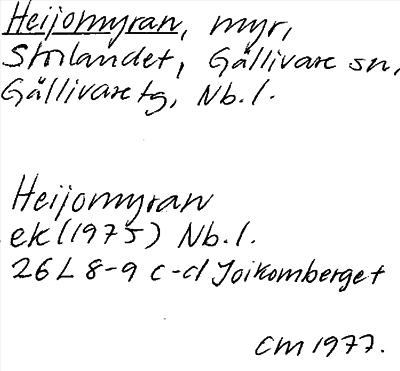 Heijomyran, myr,
Storlandet, Gällivare sn,
Gällivare tg, Nb.l.
Heijomyran
ek (1975) Nb.l.
26 L 8-9 c-d Joikomberget
CM 1977.